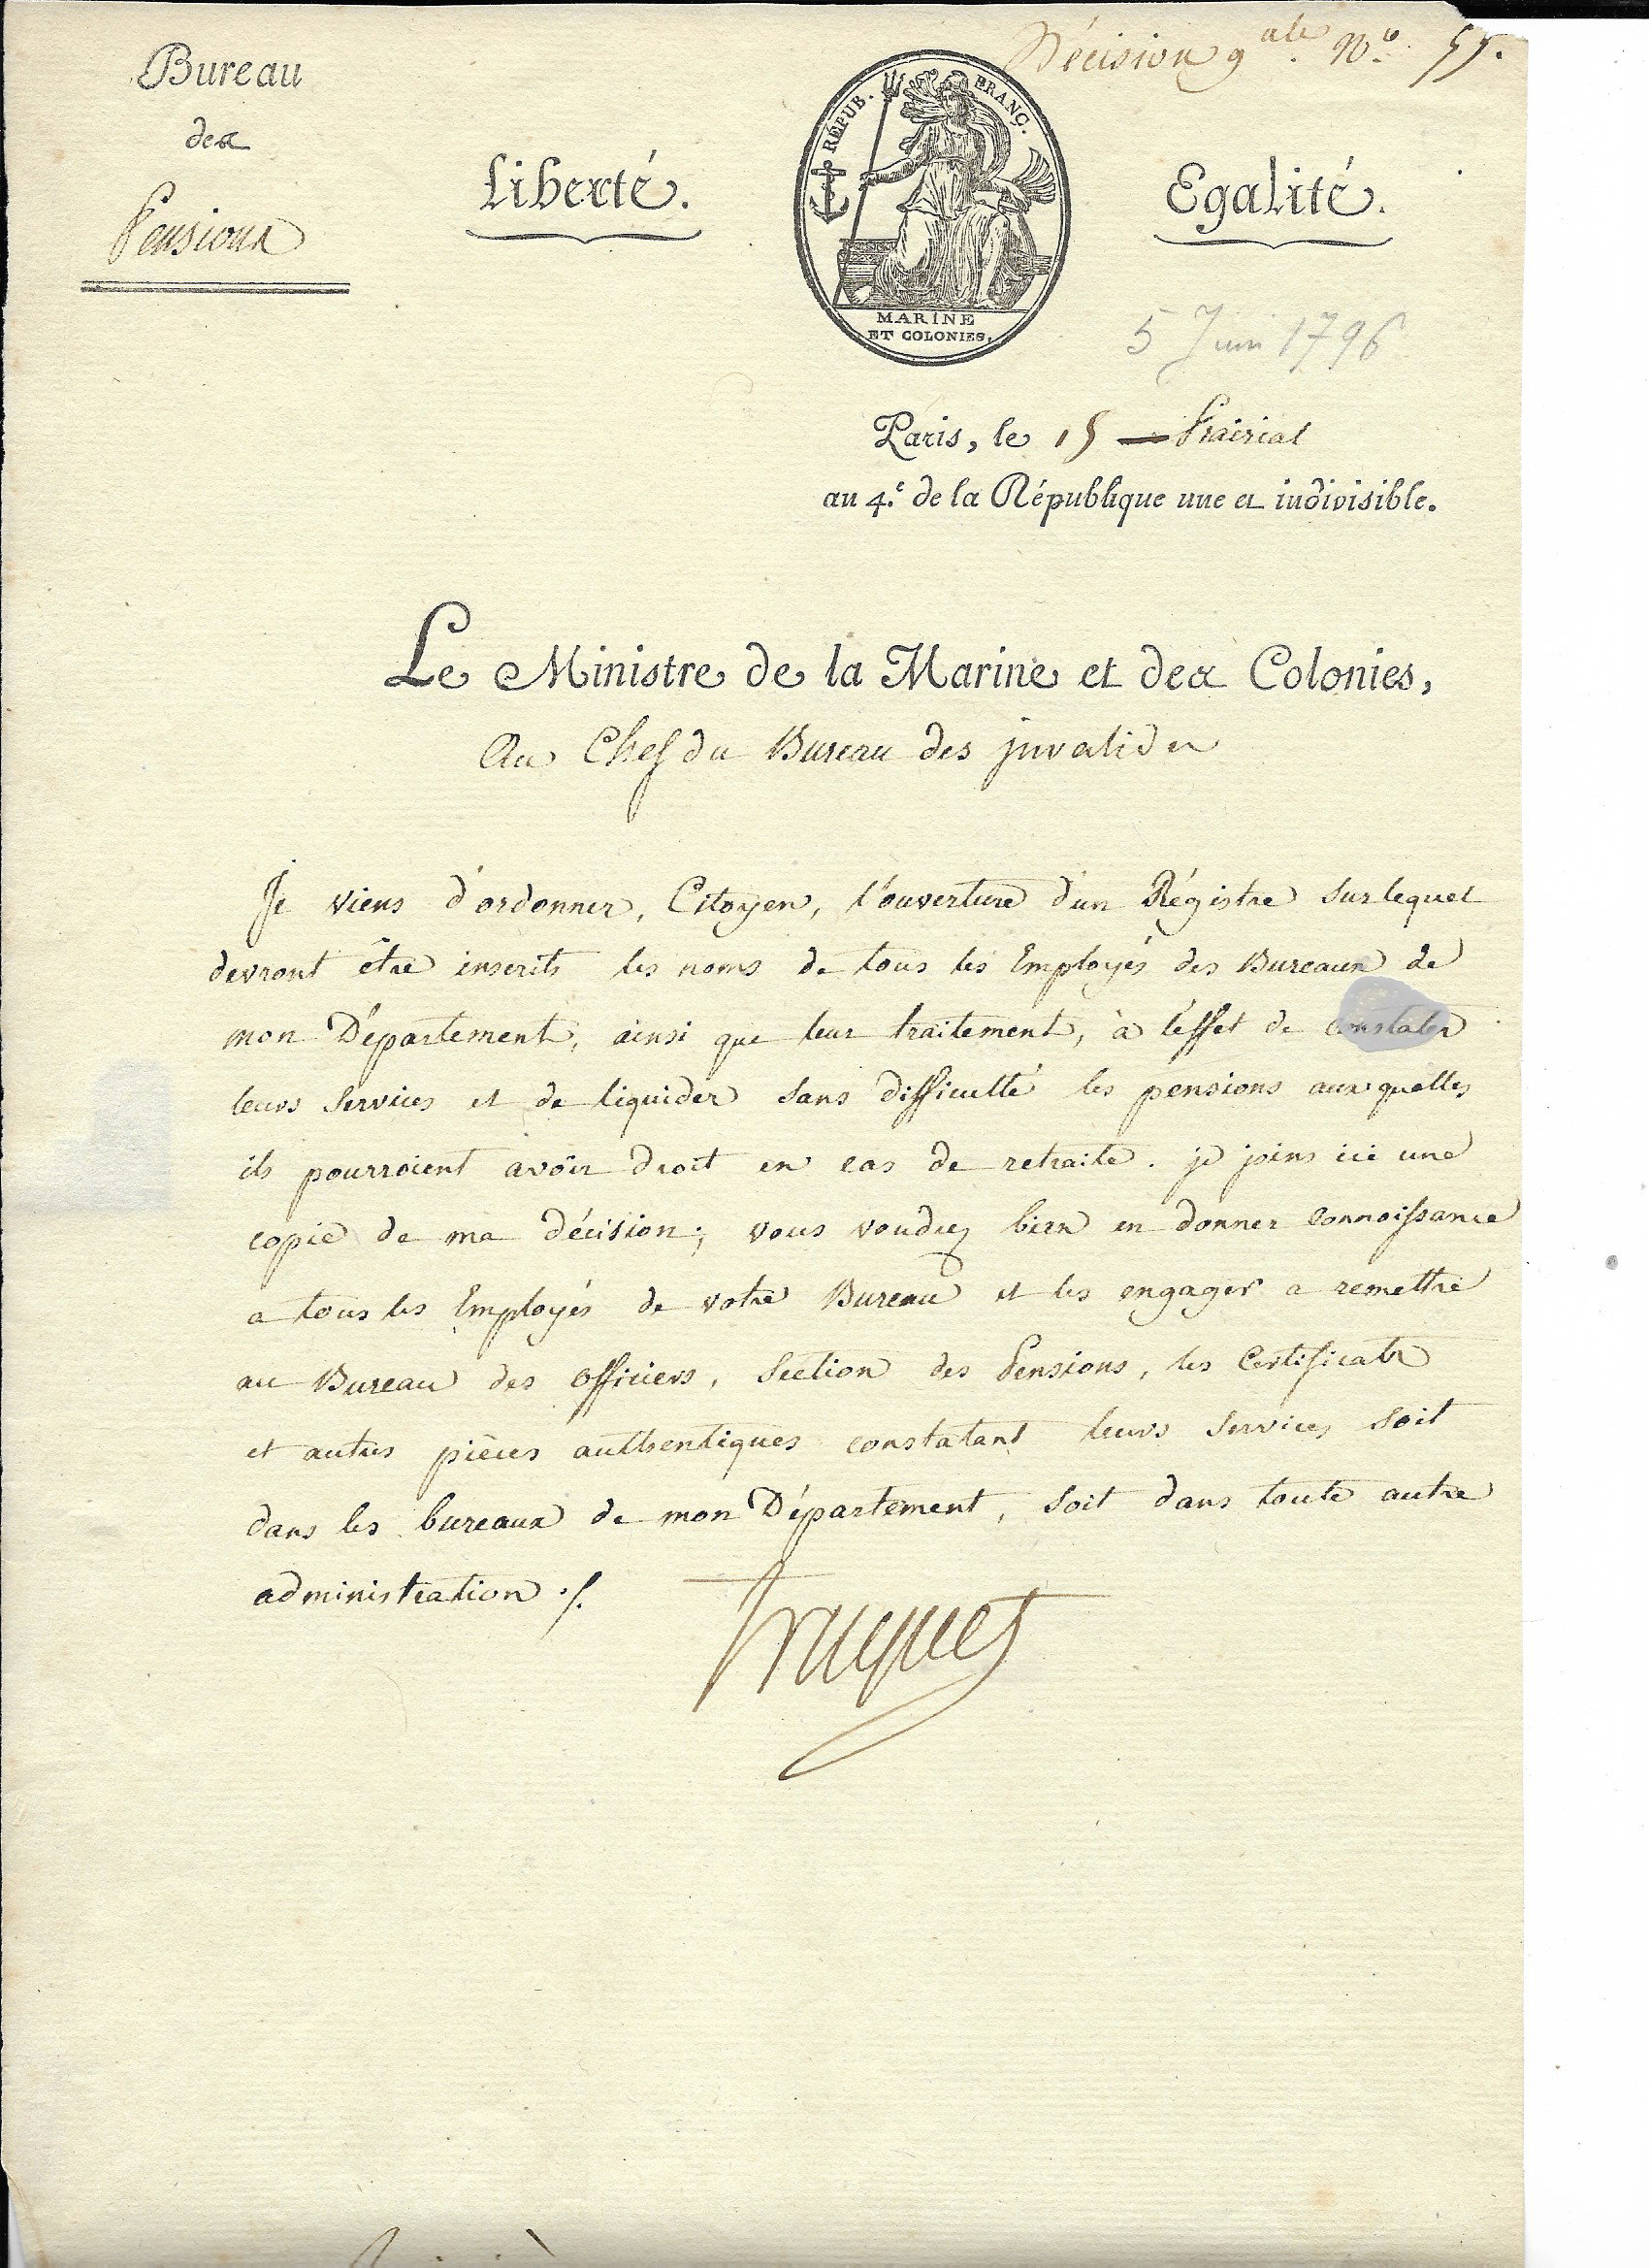 Décision gale. No. 55.
Bureau
des
Pensions
Liberté.
RÉPUB. FRANÇ.
MARINE
ET COLONIES.
Egalité.
5 Juin 1796
Paris, le 15 Prairial
an 4.e de la République une et indivisible.
Le Ministre de la Marine et des Colonies,
Au Chef du Bureau des jnvalides
Je viens d'ordonner, Citoyen, l'ouverture d'un Régistre sur lequel
devront être inscrits les noms de tous les Employés des Bureaux de
mon Département, ainsi que leur traitement, à l'effet de constater
leurs services et de liquider sans difficulté les pensions auxquelles
ils pourroient avoir droit en cas de retraite. je joins ici une
copie de ma décision; vous voudrez bien en donner connoissance
a tous les Employés de votre Bureau et les engager a remettre
au Bureau des officiers, Section des Pensions, les Certificats
et autres pièces authentiques constatant leurs services soit
dans les bureaux de mon Département, soit dans toute autre
administration ./.
Truguet